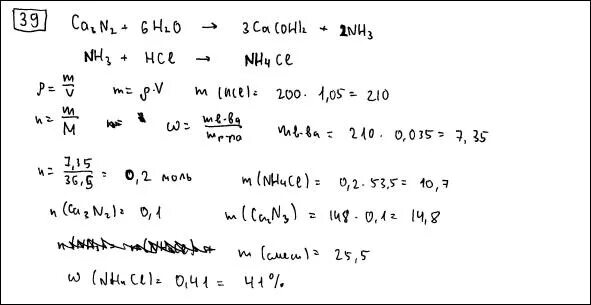 39 Ca3N2 + 6H2O → 3Ca(OH)2 + 2NH3
NH3 + HCl → NH4Cl
ρ = m/V m = ρ·V m (HCl) = 200 · 1,05 = 210
n = m/M ω = mв-ва/mр-ра mв-ва = 210 · 0,035 = 7,35
n = 7,35/36,5 = 0,2 моль m(NH4Cl) = 0,2 · 53,5 = 10,7
n(Ca3N2) = 0,1 m(Ca2N3) = 148 · 0,1 = 14,8
m(смеси) = 25,5
ω (NH4Cl) = 0,41 = 41%